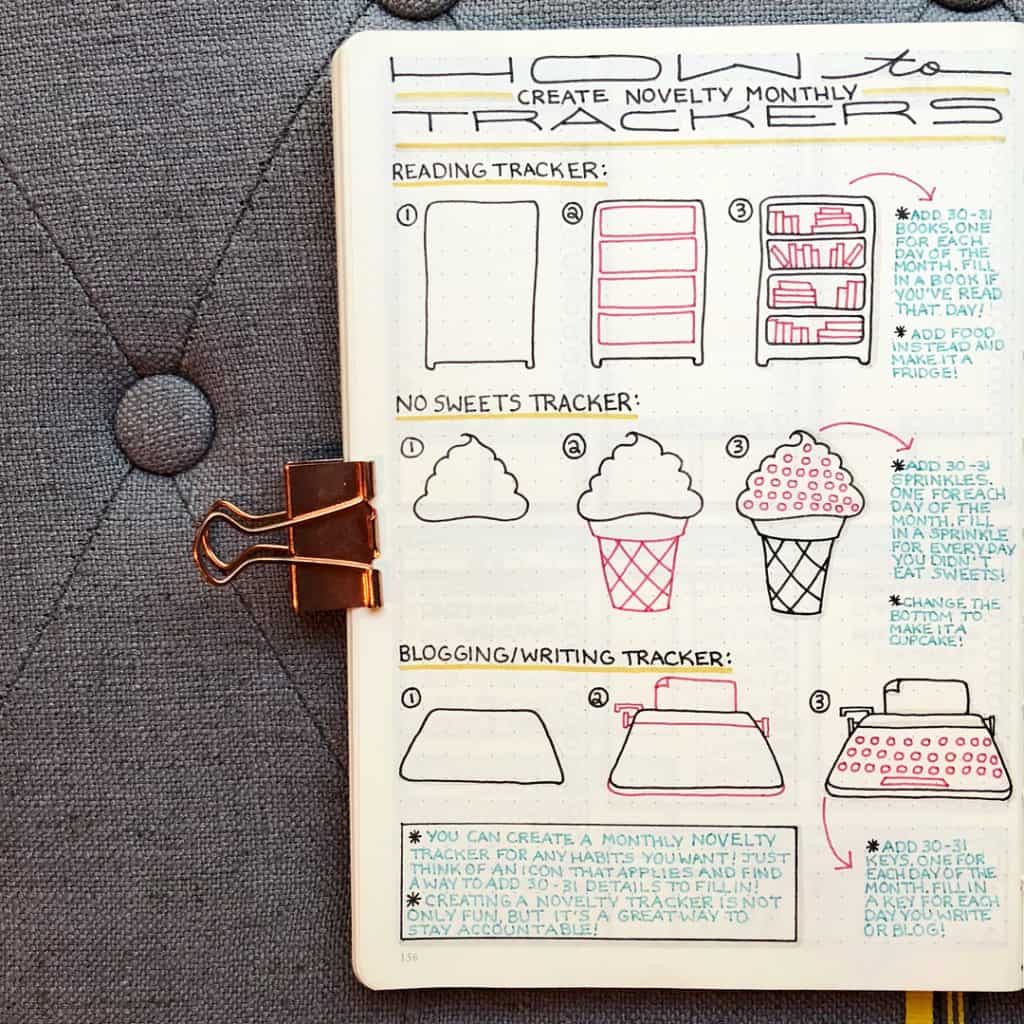 HOW to
CREATE NOVELTY MONTHLY
TRACKERS
READING TRACKER:
1
2
3
*ADD 30-31
BOOKS. ONE
FOR EACH
DAY OF THE
MONTH. FILL
IN A BOOK IF
YOU'VE READ
THAT DAY!
*ADD FOOD
INSTEAD AND
MAKE IT A
FRIDGE!
NO SWEETS TRACKER:
1
2
3
*ADD 30-31
SPRINKLES.
ONE FOR EACH
DAY OF THE
MONTH. FILL
IN A SPRINKLE
FOR EVERY DAY
YOU DIDN'T
EAT SWEETS!
*CHANGE THE
BOTTOM TO
MAKE IT A
CUPCAKE!
BLOGGING/WRITING TRACKER:
1
2
3
*ADD 30-31
KEYS. ONE FOR
EACH DAY OF THE
MONTH. FILL IN
A KEY FOR EACH
DAY YOU WRITE
OR BLOG!
* YOU CAN CREATE A MONTHLY NOVELTY
TRACKER FOR ANY HABITS YOU WANT! JUST
THINK OF AN ICON THAT APPLIES AND FIND
A WAY TO ADD 30-31 DETAILS TO FILL IN!
* CREATING A NOVELTY TRACKER IS NOT
ONLY FUN, BUT IT'S A GREAT WAY TO
STAY ACCOUNTABLE!
156